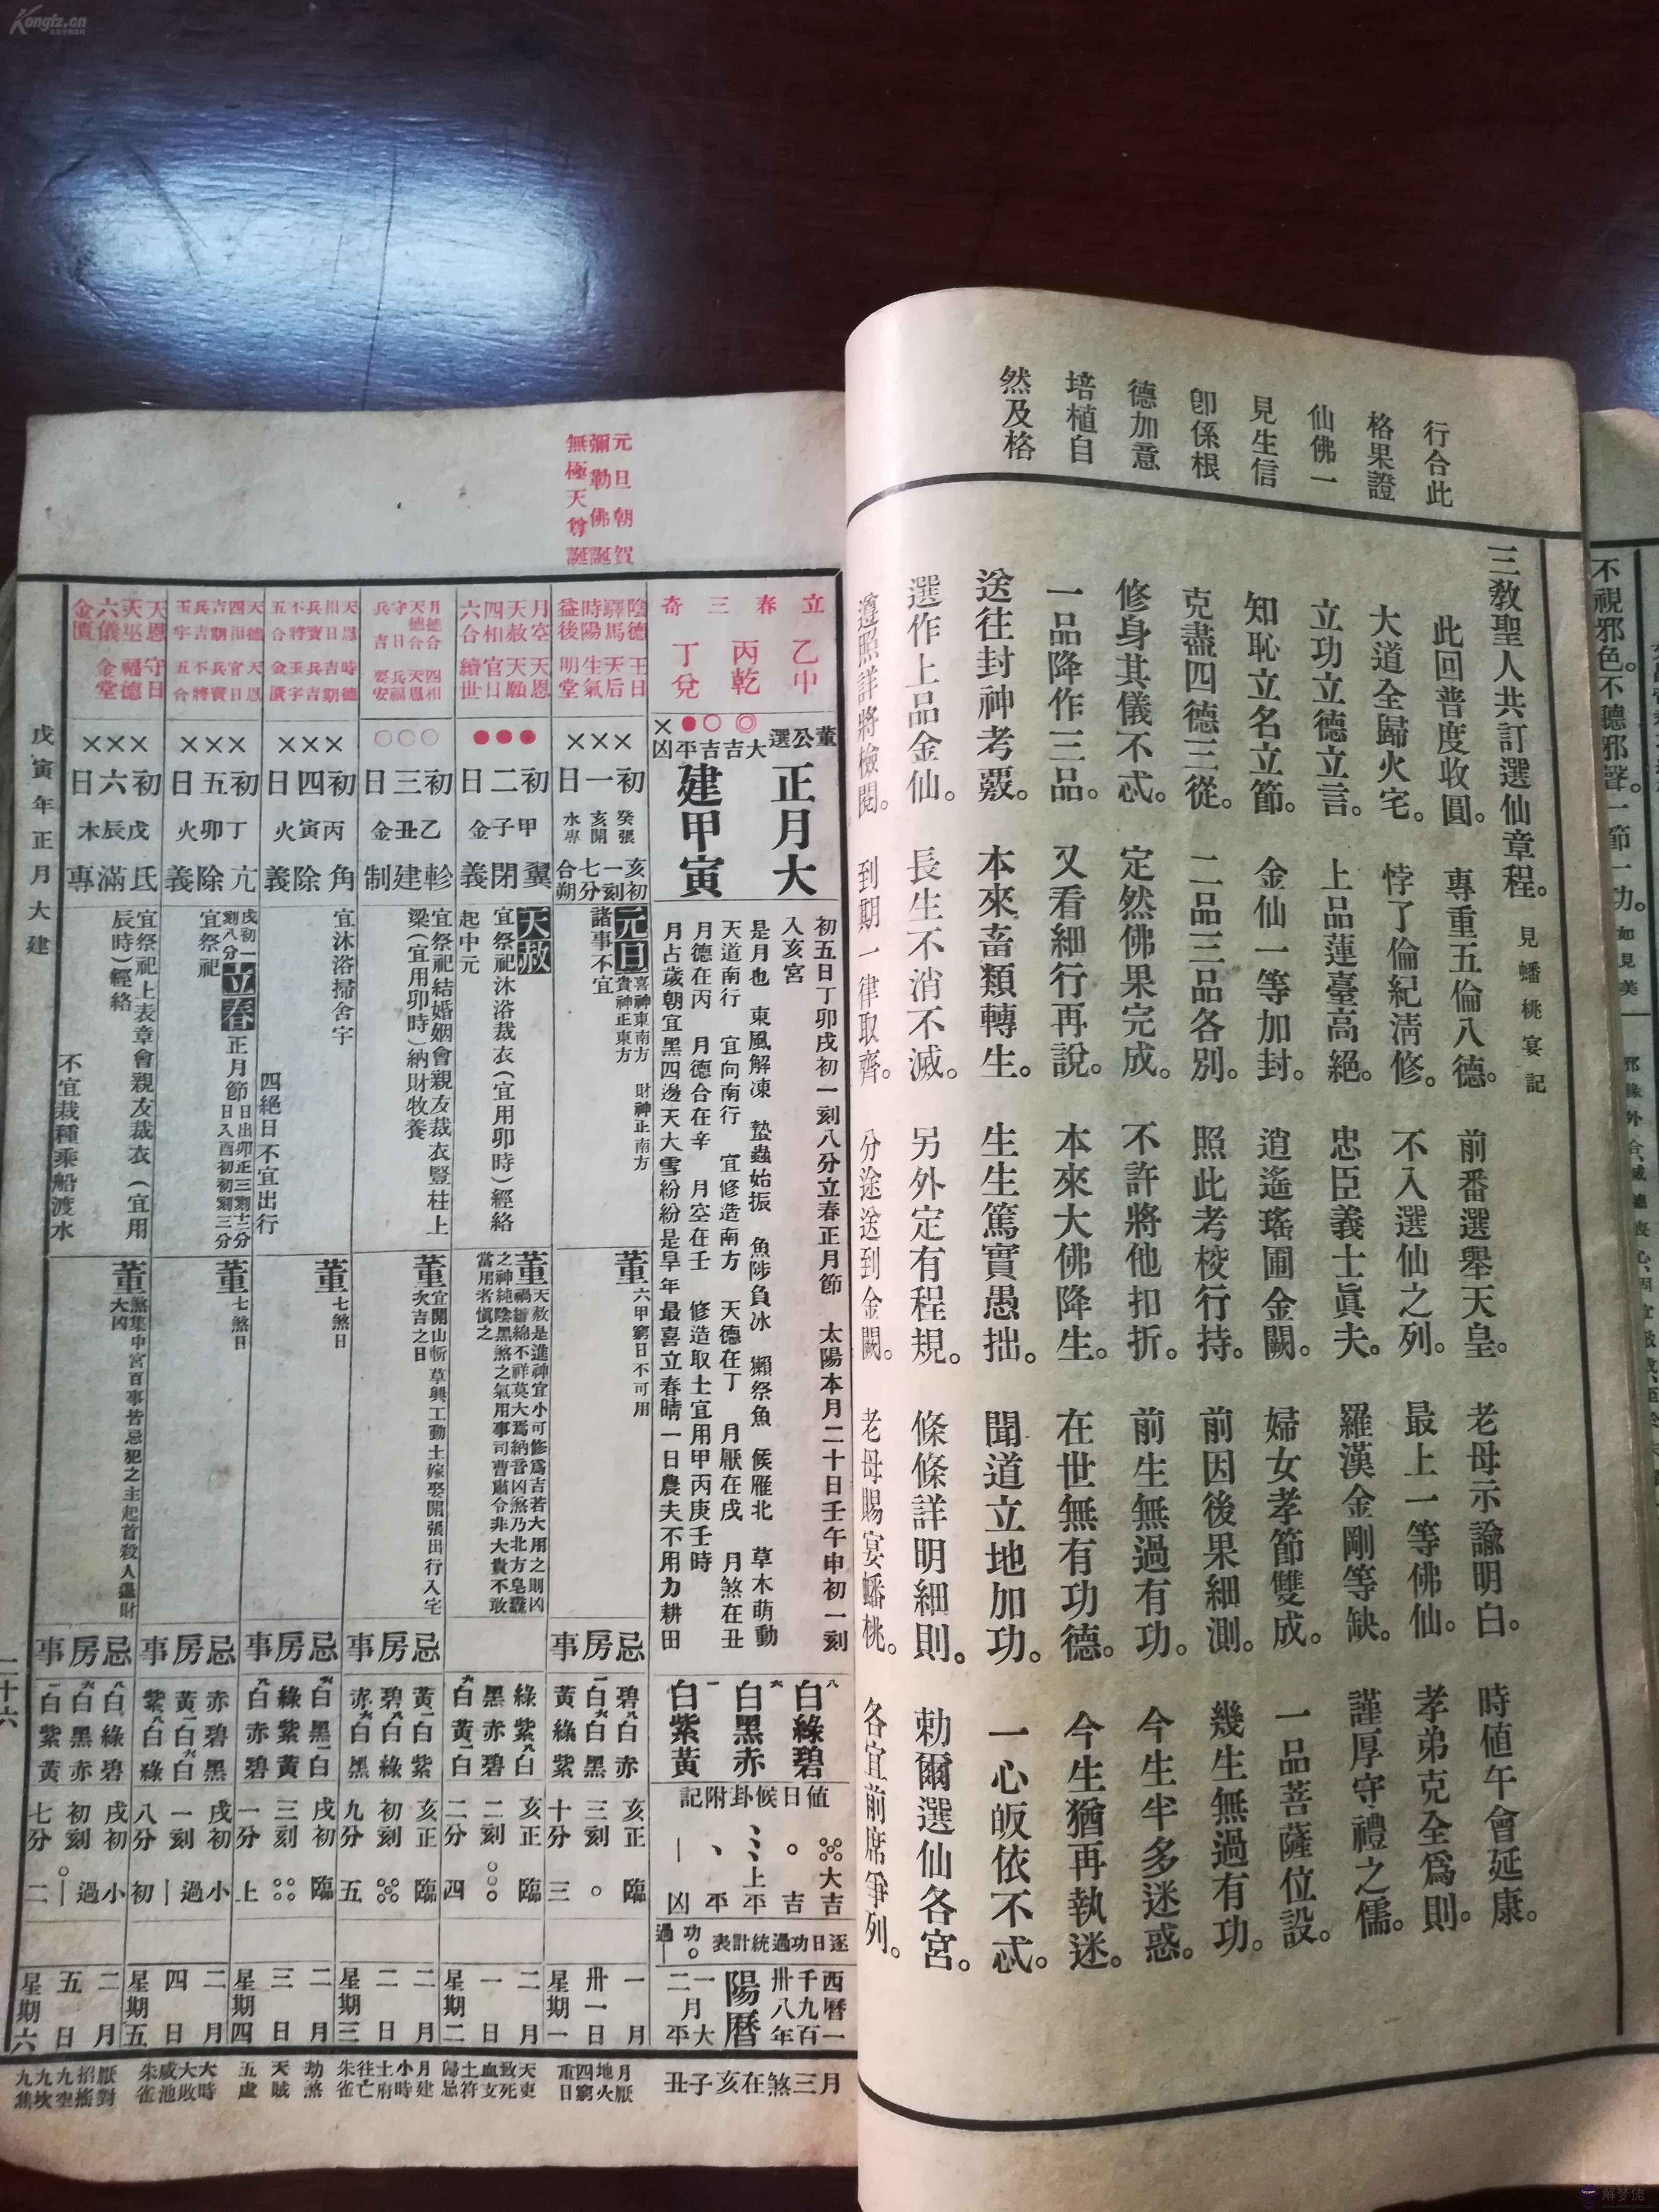 Kongfz.cn
行合此
格果證
仙佛一
見生信
卽係根
德加意
培植自
然及格
三教聖人共訂選仙章程。見蟠桃宴記
此回普度收圓。專重五倫八德。前番選舉天皇。老母示諭明白。時値午會延康。
大道全歸火宅。悖了倫紀淸修。不入選仙之列。最上一等佛仙。孝弟克全爲則。
立功立德立言。上品蓮臺高絕。忠臣義士眞夫。羅漢金剛等缺。謹厚守禮之儒。
知恥立名立節。金仙一等加封。逍遙瑤圃金闕。婦女孝節雙成。一品菩薩位設。
克盡四德三從。二品三品各別。照此考校行持。前因後果細測。幾生無過有功。
修身其儀不忒。定然佛果完成。不許將他扣折。前生無過有功。今生半多迷惑。
一品降作三品。又看細行再說。本來大佛降生。在世無有功德。今生猶再執迷。
送往封神考覈。本來畜類轉生。生生篤實愚拙。聞道立地加功。一心皈依不忒。
選作上品金仙。長生不消不滅。另外定有程規。條條詳明細則。勅爾選仙各宮。
遵照詳將檢閱。到期一律取齊。分途送到金闕。老母賜宴蟠桃。各宜前席爭列。
不視邪色。不聽邪聲。一節一功。如見美
元旦朝賀
彌勒佛誕
無極天尊誕
立春三奇
乙中
丙乾
丁兌
董公選
大吉 吉 平 凶
正月大
建甲寅
初五日丁卯戌初一刻八分立春正月節 太陽本月二十日壬午申初一刻
入亥宮
是月也 東風解凍 蟄蟲始振 魚陟負冰 獺祭魚 候雁北 草木萌動
天道南行 宜向南行 宜修造南方 天德在丁 月厭在戌 月煞在丑
月德在丙 月德合在辛 月空在壬 修造取土宜用甲丙庚壬時
月占歲朝宜黑四邊天大雪紛紛是旱年最喜立春晴一日農夫不用力耕田
八白綠碧
六白黑赤
一白紫黃
値日候卦附記
大吉
吉
上平
平
凶
逐日功過統計表
功○
過〡
西曆一千九百卅八年
陽曆
一月大
二月平
月三煞在亥子丑
陰德 王日
驛馬 天后
時陽 生氣
益後 明堂
×××
初一日
癸亥水
張開專
亥初一刻七分合朔
元旦 喜神東南方 財神正南方
貴神正東方
諸事不宜
董 六甲窮日不可用
忌房事
碧八白赤
一白六白黑
黃綠紫
亥正三刻十分
臨
三
一月卅一日
星期一
月厭
地火
四窮
重日
月空 天恩
天赦 天願
四相 官日
六合 續世
初二日
甲子金
翼閉義
天赦
宜祭祀沐浴裁衣（宜用卯時）經絡
起中元
董 天赦是進神宜小可修爲吉若大用之則凶
禍纏綿不祥莫大焉納音凶煞乃北方皂纛
之神純陰黑煞之氣用事司曹肅令非大貴不敢
當用者愼之
綠紫八白
黑赤碧
六白黃一白
亥正二刻二分
四
二月一日
星期二
天吏
致死
血支
土符
歸忌
月德合 四相
天德合 天恩
守日 兵福
兵吉 要安
初三日
乙丑金
軫建制
宜祭祀結婚姻會親友裁衣豎柱上
梁（宜用卯時）納財牧養
董 宜開山斬草興工動土嫁娶開張出行入宅
次吉之日
忌房事
黃一白紫
碧八白綠
赤六白黑
亥正初刻九分
臨
五
二月二日
星期三
月建
小時
土府
往亡
朱雀
天恩 時德
相日 吉期
兵寶 兵吉
不將 玉宇
五合 金匱
×××
初四日
丙寅火
角除義
宜沐浴掃舍宇
四絕日不宜出行
董 七煞日
忌房事
六白黑一白
綠紫黃
九白赤碧
戌初三刻一分
臨
上
二月三日
星期四
劫煞
天賊
五虛
天德 天恩
四相 官日
吉期 兵寶
兵吉 不將
玉宇 五合
×××
初五日
丁卯火
亢除義
戌初一刻八分立春正月節 日出卯正三刻十二分
日入酉初初刻三分
宜祭祀
董 七煞日
忌房事
赤碧黑
黃一白六白
紫八白綠
戌初一刻八分
小過
初
二月四日
星期五
大時
大敗
咸池
朱雀
天恩 守日
天巫 福德
六儀 金堂
金匱
×××
初六日
戊辰木
氐滿專
宜祭祀上表章會親友裁衣（宜用
辰時）經絡
不宜栽種乘船渡水
董 煞集中宮百事皆忌犯之主起首殺人退財
大凶
忌房事
八白綠碧
六白黑赤
一白紫黃
戌初初刻七分
小過
二
二月五日
星期六
厭對
招搖
九空
九坎
九焦
戊寅年正月大建
二十六
解梦佬